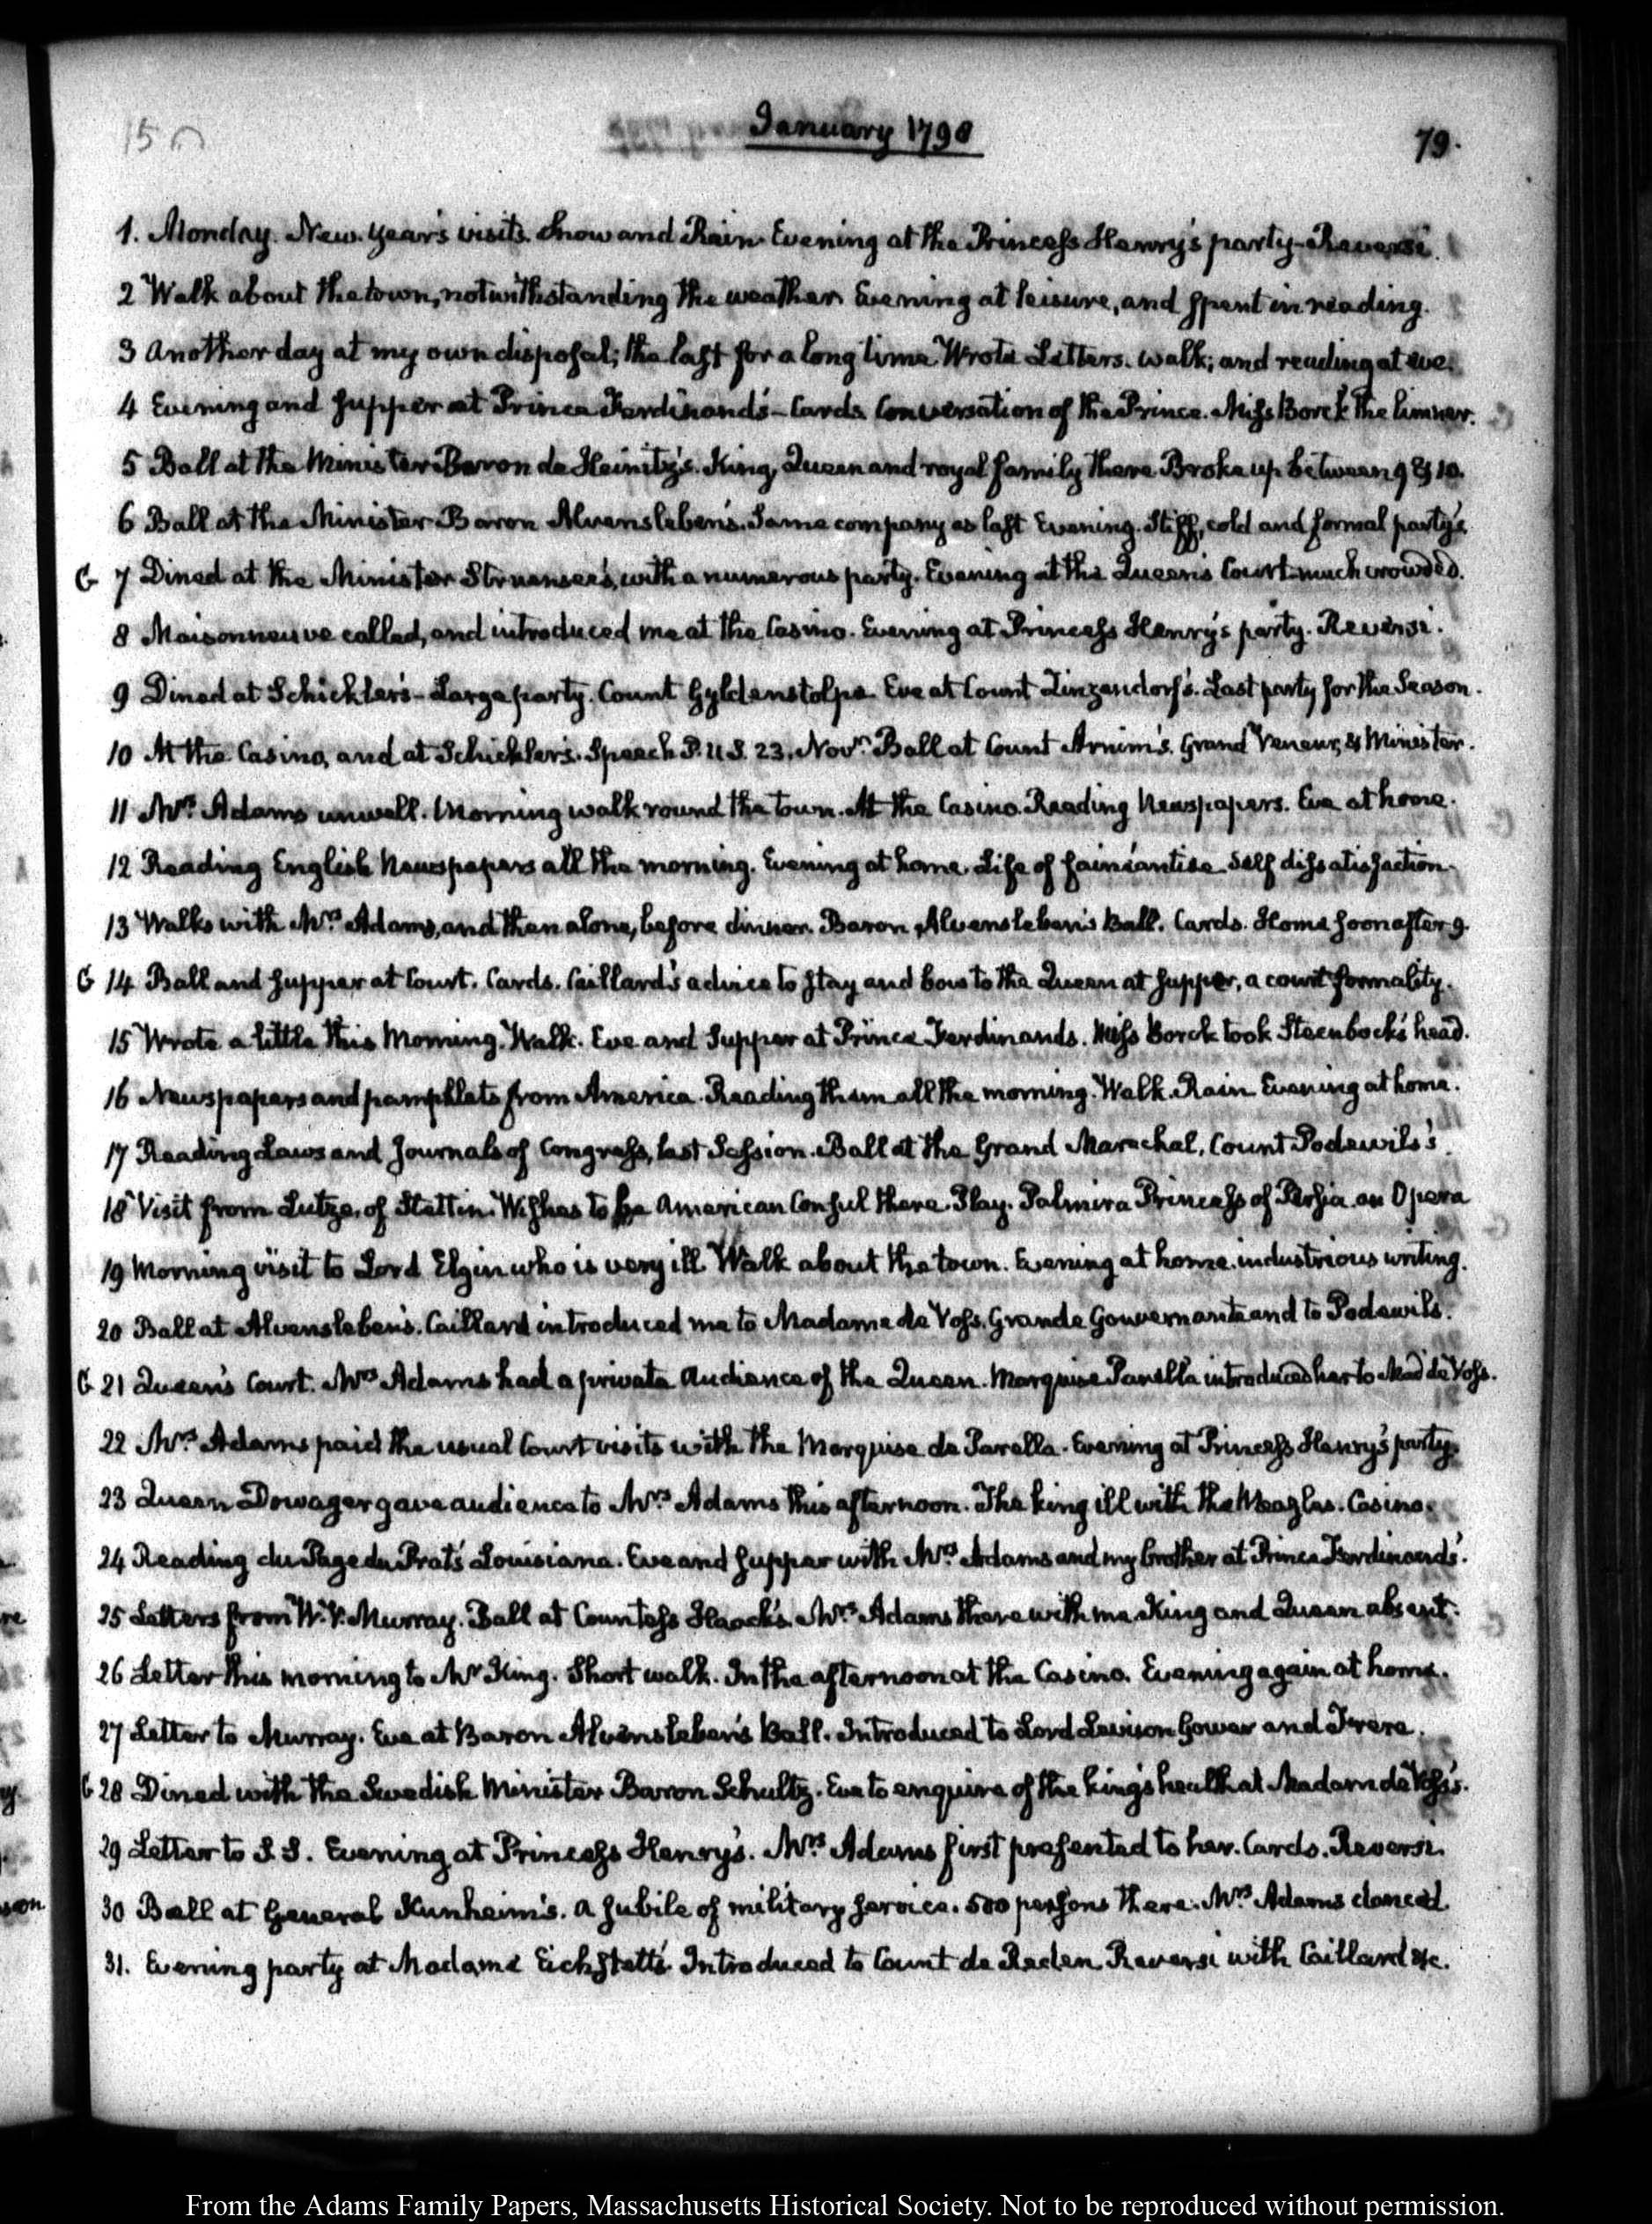 January 1798
79.
1. Monday. New. year's visits. Snow and Rain. Evening at the Princess Henry's party - Reversi.
2 Walk about the town, notwithstanding the weather. Evening at leisure, and spent in reading.
3 Another day at my own disposal; the last for a long time. Wrote Letters. walk; and reading at eve.
4 Evening and supper at Prince Ferdinand's - Cards. Conversation of the Prince. Miss Borck the limner.
5 Ball at the Minister Baron de Heinitz's. King, Queen and royal family there. Broke up between 9 & 10.
6 Ball at the Minister Baron Alvensleben's. Same company as last Evening. Stiff, cold and formal party's
G 7 Dined at the Minister Struensee's, with a numerous party. Evening at the Queen's Court much crowded.
8 Maisonneuve called, and introduced me at the Casino. Evening at Princess Henry's party. Reversi.
9 Dined at Schickler's - Large party. Count Gyldenstolpe. Eve at Count Zinzendorf's. Last party for the Season.
10 At the Casino, and at Schickler's. Speech P. U S. 23. Novr. Ball at Count Arnim's. Grand Veneur, & Minister.
11 Mrs. Adams unwell. Morning walk round the town. At the Casino. Reading Newspapers. Eve at home.
12 Reading English Newspapers all the morning. Evening at home. Life of faineantise. Self dissatisfaction.
13 Walks with Mrs. Adams, and then alone, before dinner. Baron Alvensleben's Ball. Cards. Home soon after 9.
G 14 Ball and supper at Court. Cards. Caillard's advice to stay and bow to the Queen at supper, a court formality.
15 Wrote a little this Morning. Walk. Eve and Supper at Prince Ferdinands. Miss Borck took Steenbock's head.
16 Newspapers and pamphlets from America. Reading them all the morning. Walk. Rain. Evening at home.
17 Reading Laws and Journals of Congress, last Session. Ball at the Grand Marechal, Count Podewils's.
18 Visit from Lutze, of Stettin. Wishes to be American Consul there. Play. Palmira Princess of Persia. an Opera
19 Morning visit to Lord Elgin who is very ill. Walk about the town. Evening at home. industrious writing.
20 Ball at Alvensleben's. Caillard introduced me to Madame de Voss. Grande Gouvernante and to Podewils.
G 21 Queen's Court. Mrs. Adams had a private Audience of the Queen. Marquise Parella introduced her to Mad de Voss.
22 Mrs. Adams paid the usual Court visits with the Marquise de Parella. Evening at Princess Henry's party.
23 Queen Dowager gave audience to Mrs. Adams this afternoon. The king ill with the Meazles. Casino.
24 Reading du Page du Prat's Louisiana. Eve and supper with Mrs. Adams and my brother at Prince Ferdinands'.
25 Letters from W. V. Murray. Ball at Countess Haack's. Mrs. Adams there with me. King and Queen absent.
26 Letter this morning to Mr King. Short walk. In the afternoon at the Casino. Evening again at home.
27 Letter to Murray. Eve at Baron Alvensleben's Ball. Introduced to Lord Levison Gower and Frere.
G 28 Dined with the Swedish Minister Baron Schultz. Eve to enquire of the king's health at Madam de Voss's.
29 Letter to S. S. Evening at Princess Henry's. Mrs. Adams first presented to her. Cards. Reversi.
30 Ball at General Kunheim's. A jubile of military service. 500 persons there. Mrs. Adams danced.
31. Evening party at Madame Eichstett's. Introduced to Count de Reden. Reversi with Caillard &c.
From the Adams Family Papers, Massachusetts Historical Society. Not to be reproduced without permission.